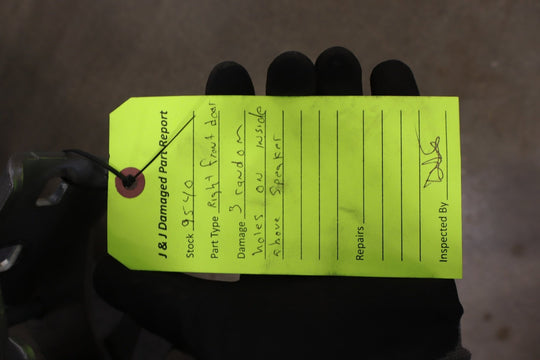 J & J Damaged Part Report
Stock 9540
Part Type Right front door
Damage 3 random
holes on inside
above speaker
Repairs
Inspected By